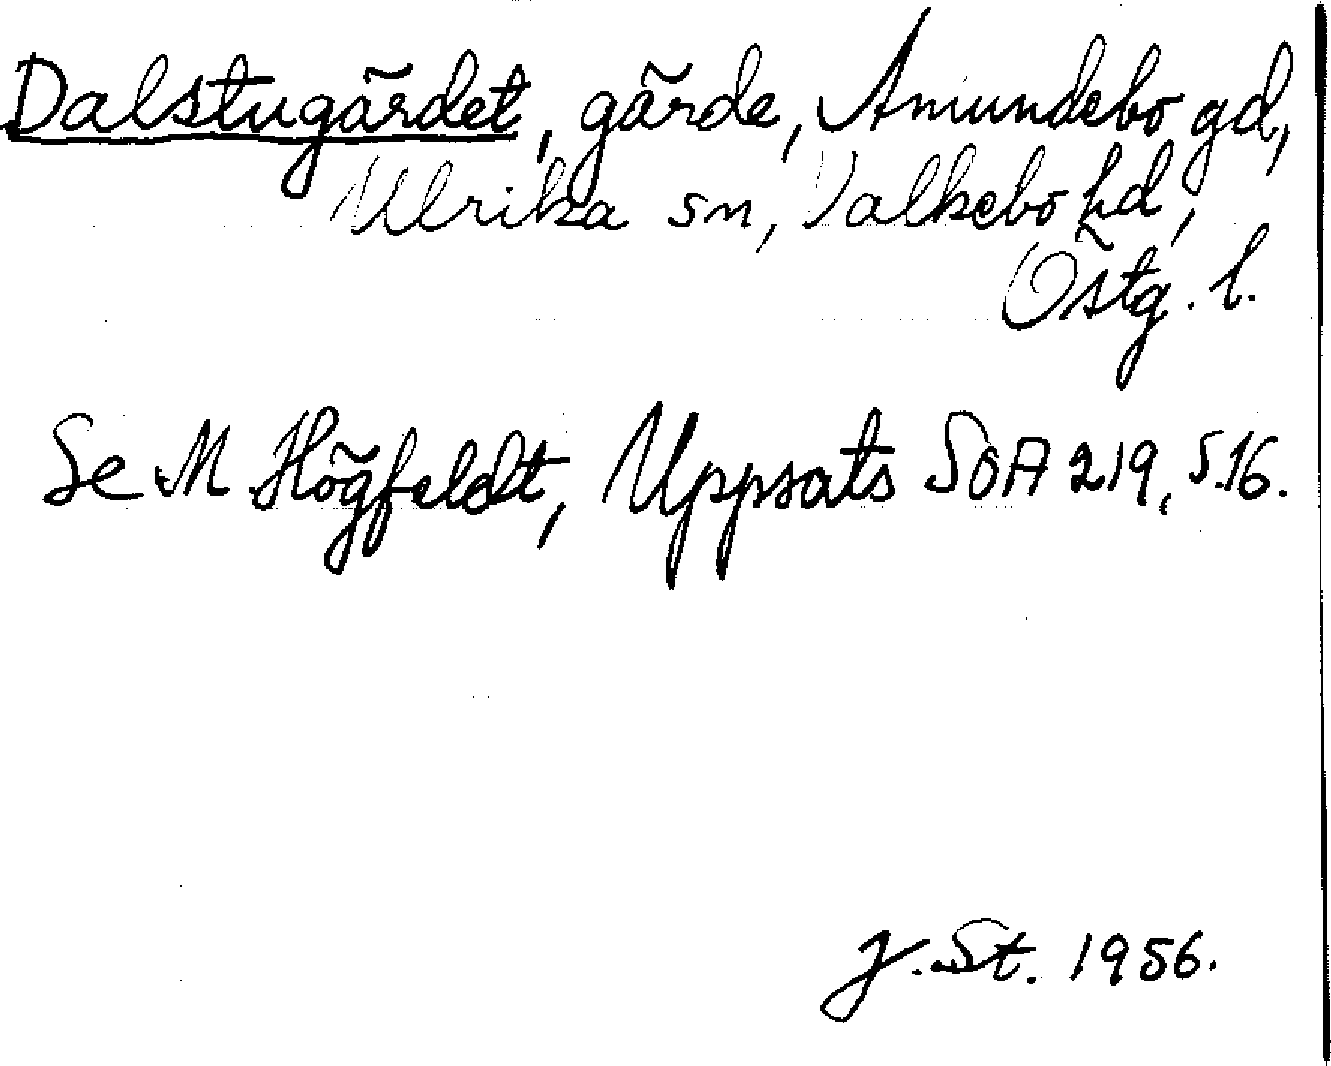 Dalstugärdet, gärde, Amundebo gd,
Ulrika sn, Valkebo hd,
Östg. l.
Se M Högfeldt, Uppsats SOA 219, s.16.
J. St. 1956.